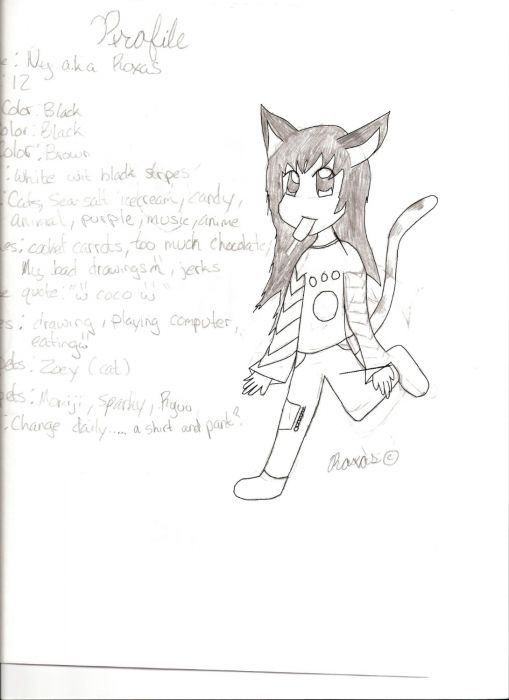 Profile
e: Ny a.k.a Roxas
: 12
Color: Black
olor: Black
Color: Brown
: White wit black stripes
: Cats, Sea-salt icecream, candy,
animal, purple, music, anime
es: cooket carrots, too much chocolate,
My bad drawings, jerks
e quote: " coco "
es: drawing, playing computer,
eating
pets: Zoey (cat)
pets: , Sparky,
: Change daily..... a shirt and pant?
Roxas ©